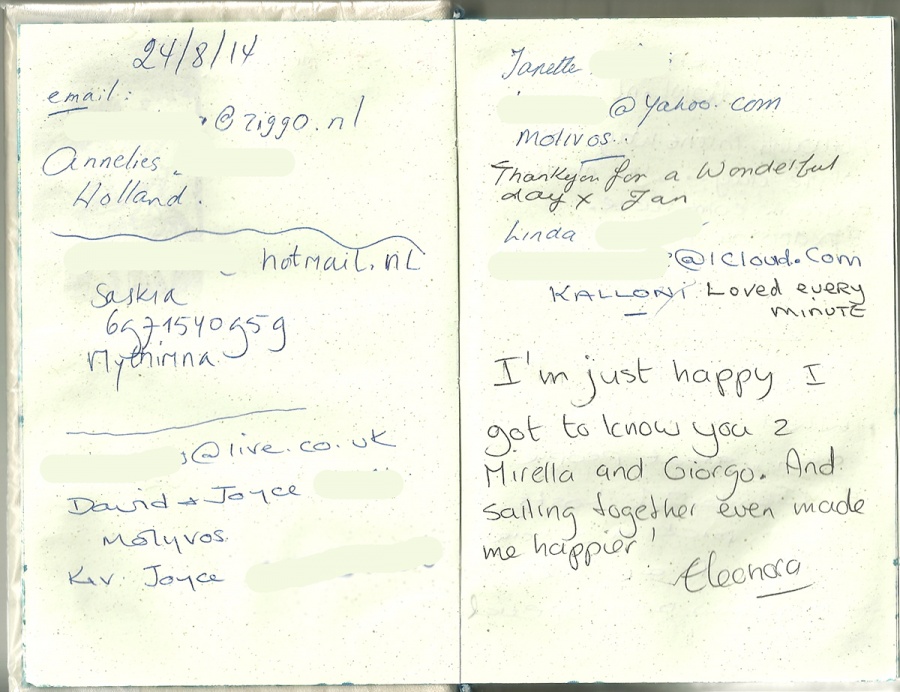 24/8/14
email:
@ziggo.nl
Annelies
Holland.
hotmail.nl
Saskia
6971540959
Mythimna
@live.co.uk
David + Joyce
Molyvos
Joyce
Janette
@yahoo.com
Molivos
Thankyou for a Wonderful
day x Jan
Linda
@ICloud.Com
KALLONI Loved every
minute
I'm just happy I
got to know you 2
Mirella and Giorgo. And
sailing together even made
me happier!
Eleonora